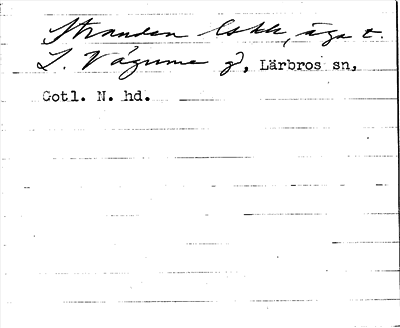 Stranden Eskk, äga t.
L. Vägume g, Lärbros sn,
Gotl. N. hd.